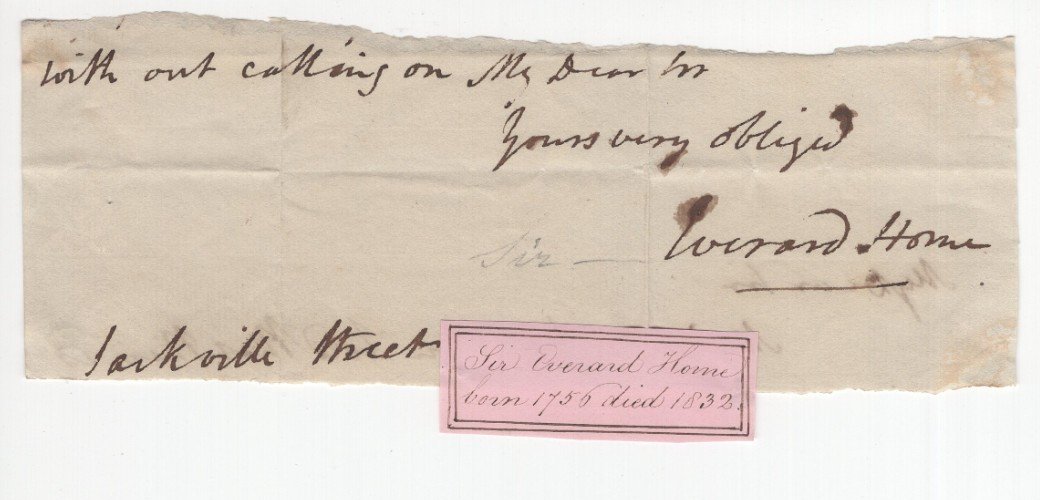 with out calling on My Dear Sir
Yours very obliged
Everard Home
Sir —
Sackville Street
Sir Everard Home
born 1756 died 1832.